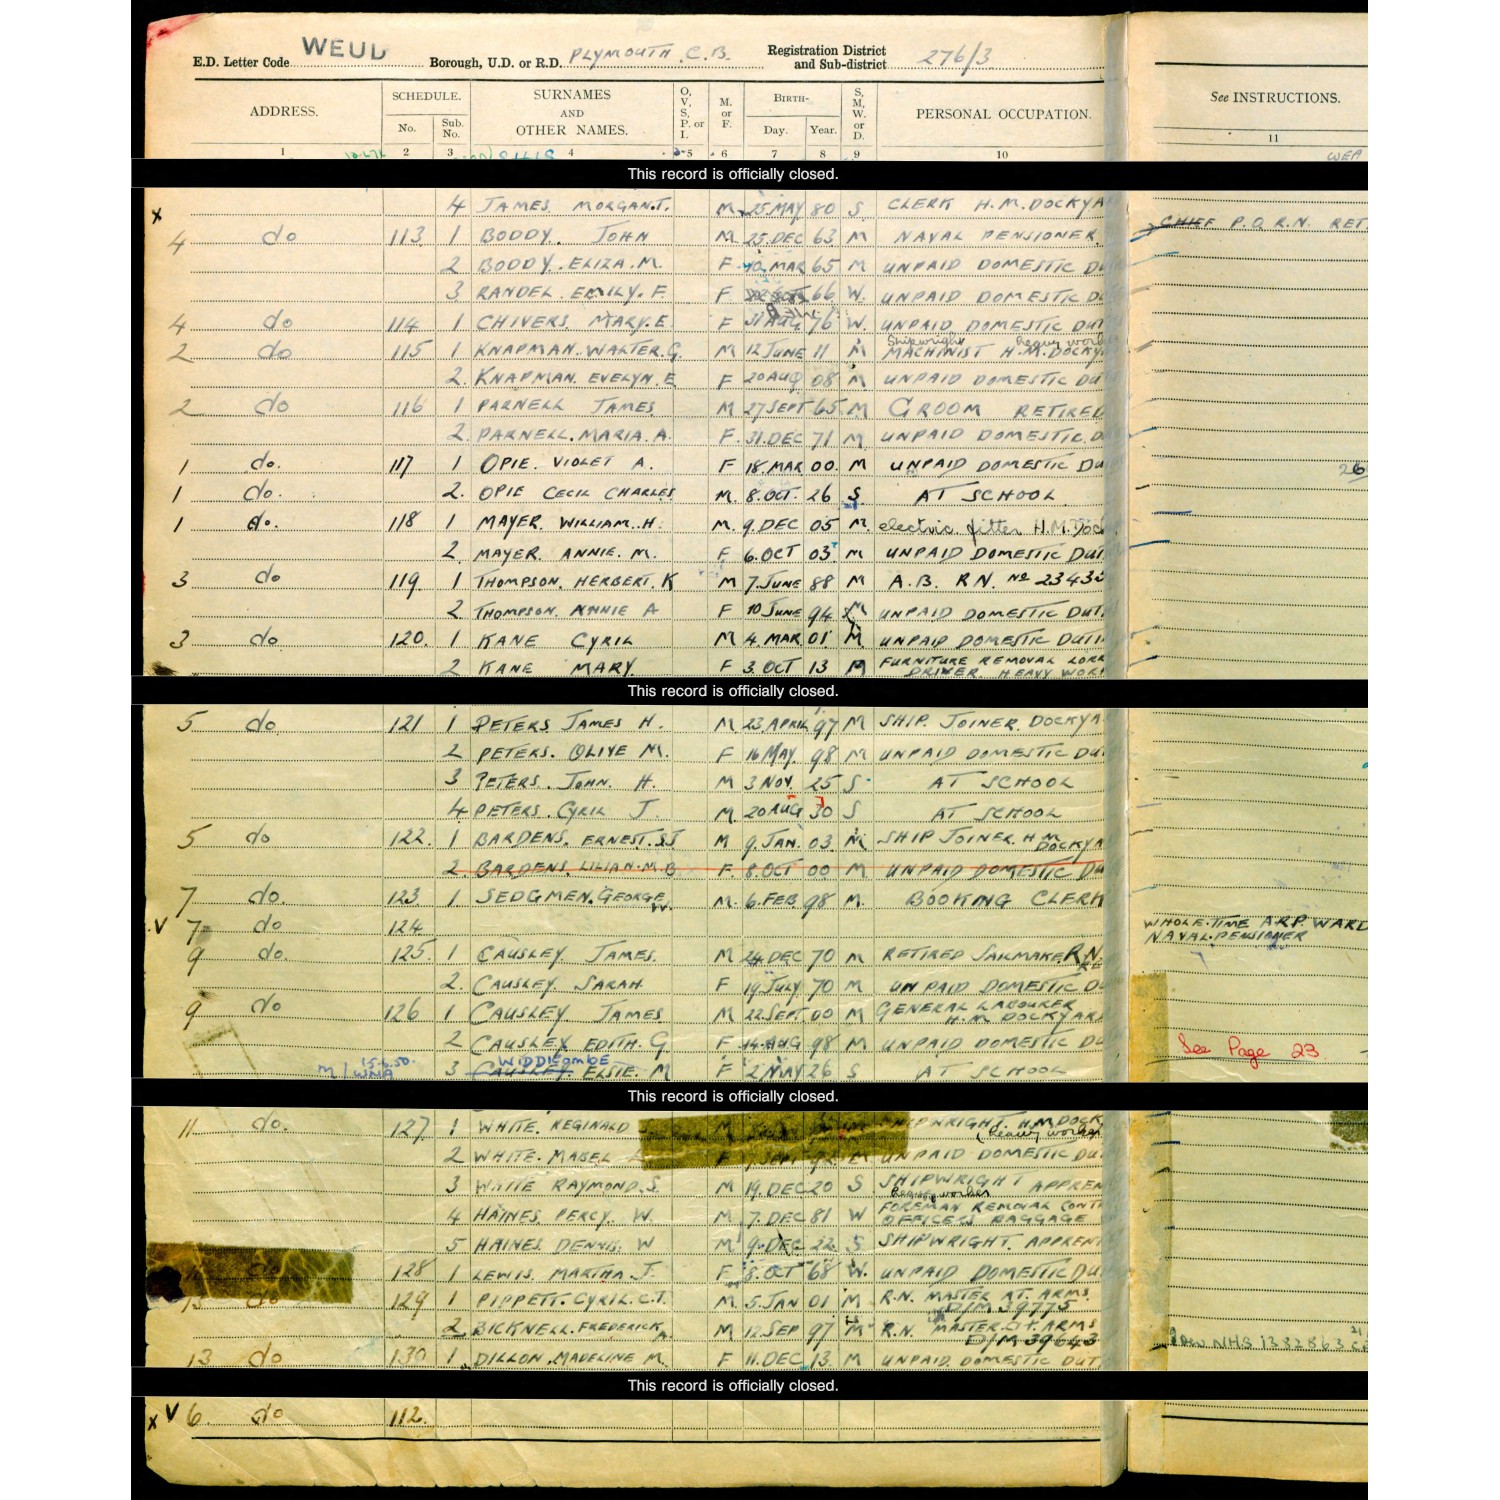 E.D. Letter Code WEUD Borough, U.D. or R.D. PLYMOUTH C.B. Registration District and Sub-district 276/3
ADDRESS. SCHEDULE. No. Sub. No. SURNAMES AND OTHER NAMES. O, V, S, P. or I. M. or F. BIRTH- Day. Year. S, M, W. or D. PERSONAL OCCUPATION. See INSTRUCTIONS.
1 2 3 4 5 6 7 8 9 10 11
This record is officially closed.
x 4 JAMES MORGAN.T. M 25 MAY 80 S. CLERK H.M. DOCKYA
CHIEF P.O R.N. RET.
4 do 113 1 BODDY. JOHN M 25 DEC 63 M NAVAL PENSIONER.
2 BODDY. ELIZA. M. F MAR 65 M UNPAID DOMESTIC DU
3 RANDEL. EMILY. F. F 66 W. UNPAID DOMESTIC DU
4 do 114 1 CHIVERS. MARY. E. F 31 AUG 76 W. UNPAID DOMESTIC DUT
2 do 115 1 KNAPMAN. WALTER. G. M 12 JUNE 11 M Shipwright heavy work MACHINIST H.M. DOCKY
2. KNAPMAN. EVELYN. E F 20 AUG 08 M UNPAID DOMESTIC DU
2 do 116 1 PARNELL JAMES M 27 SEPT 65 M GROOM RETIRED
2. PARNELL. MARIA. A. F. 31. DEC 71 M UNPAID DOMESTIC. D
1 do. 117 1 OPIE. VIOLET A. F 18. MAR 00. M UNPAID DOMESTIC DU 26
1 do. 2. OPIE CECIL CHARLES M. 8. OCT. 26 S AT SCHOOL
1 do. 118 1 MAYER. WILLIAM. H. M. 9. DEC 05 M. electric fitter H.M. Doc
2. MAYER. ANNIE. M. F 6. OCT 03 M UNPAID DOMESTIC DUT
3 do 119. 1 THOMPSON. HERBERT. K M 7. JUNE 88 M A.B. R.N. No 2343
2 THOMPSON. ANNIE A F 10 JUNE 94 M UNPAID DOMESTIC DUT
3 do 120. 1 KANE CYRIL M 4. MAR 01 M UNPAID DOMESTIC DUTI
2 KANE MARY. F 3. OCT 13 M FURNITURE REMOVAL LORR DRIVER. HEAVY WOR
This record is officially closed.
5 do 121 1 PETERS JAMES H. M 23 APRIL 97 M SHIP. JOINER. DOCKYA
2 PETERS. OLIVE M. F 16 MAY. 98 M UNPAID DOMESTIC DU
3 PETERS. JOHN. H. M 3 NOV. 25 S AT SCHOOL
4 PETERS. CYRIL J. M. 20 AUG 30 S AT SCHOOL
5 do 122. 1 BARDENS. ERNEST. S.J M 9. JAN. 03. M SHIP JOINER. H M DOCKYA
2. BARDENS. LILIAN. M. B F. 8. OCT 00 M UNPAID DOMESTIC DU
7 do. 123. 1 SEDGMEN. GEORGE W. M. 6. FEB. 98 M. BOOKING CLERK
V 7 do 124 WHOLE-TIME ARP. WARD
NAVAL-PENSIONER
9 do. 125. 1 CAUSLEY JAMES. M 24. DEC 70 M RETIRED SAILMAKER R.N. RE
2. CAUSLEY. SARAH. F 19 JULY 70 M UNPAID DOMESTIC D
9 do 126 1 CAUSLEY JAMES M 22. SEPT 00 M GENERAL LABOURER H.M DOCKYARD
2 CAUSLEY EDITH. G F 14. AUG 98 M UNPAID DOMESTIC DU
See Page 23
M/WNA 15.6.50. 3 CAUSLEY. WIDDICOMBE ELSIE. M F 2 MAY 26 S AT SCHOOL
This record is officially closed.
11 do. 127. 1 WHITE. REGINALD M SHIPWRIGHT. H.M DOCK (heavy worker
2 WHITE. MABEL F SEPT M UNPAID DOMESTIC DUT
3 WHITE RAYMOND. S. M 19. DEC 20 S SHIPWRIGHT APPREN
4 HAINES PERCY. W. M 7. DEC 81 W Heavy worker FOREMAN REMOVAL CONT OFFICERS BAGGAGE
5 HAINES. DENNIS. W M 9. DEC 22 S SHIPWRIGHT. APPREN
do 128 1 LEWIS. MARTHA. J. F 8. OCT 68 W. UNPAID DOMESTIC DU
13 do 129 1 PIPPETT. CYRIL. C.T. M. 5. JAN 01 M R.N. MASTER AT. ARMS. D/M 39775
2 BICKNELL. FREDERICK. A. M 12. SEP 97 M R.N. MASTER AT. ARMS D/M 39643
NHS 1382863
13 do 130 1 DILLON. MADELINE M. F 11. DEC 13. M UNPAID. DOMESTIC DUT
This record is officially closed.
x V 6. do 112.